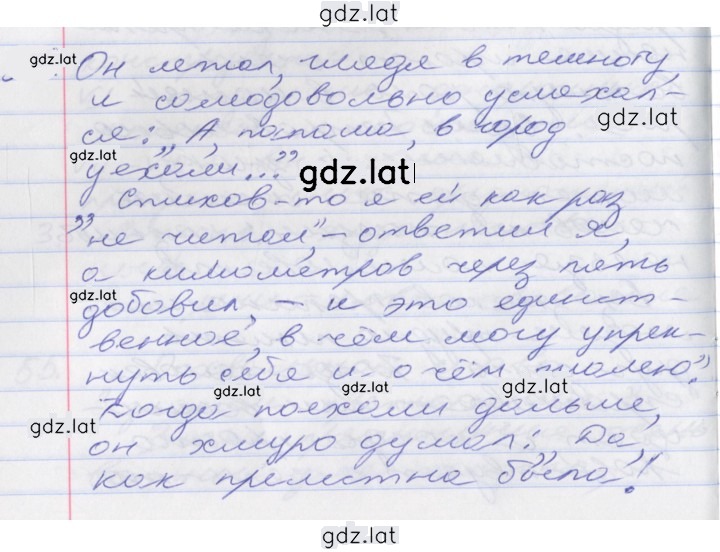 gdz.lat
gdz.lat Он летал, глядя в темноту
и самодовольно усмехал-
gdz.lat
ся: „А, папаша, в город
gdz.lat
уехали..."
gdz.lat
Стихов-то я ей как раз
„не читал", - ответил я,
а километров через пять
gdz.lat
добавил, - и это единст-
венное, в чём могу упрек-
нуть себя и о чём жалею."
gdz.lat gdz.lat
Когда поехали дальше,
gdz.lat
он хмуро думал: „Да,
как прелестна была!
gdz.lat